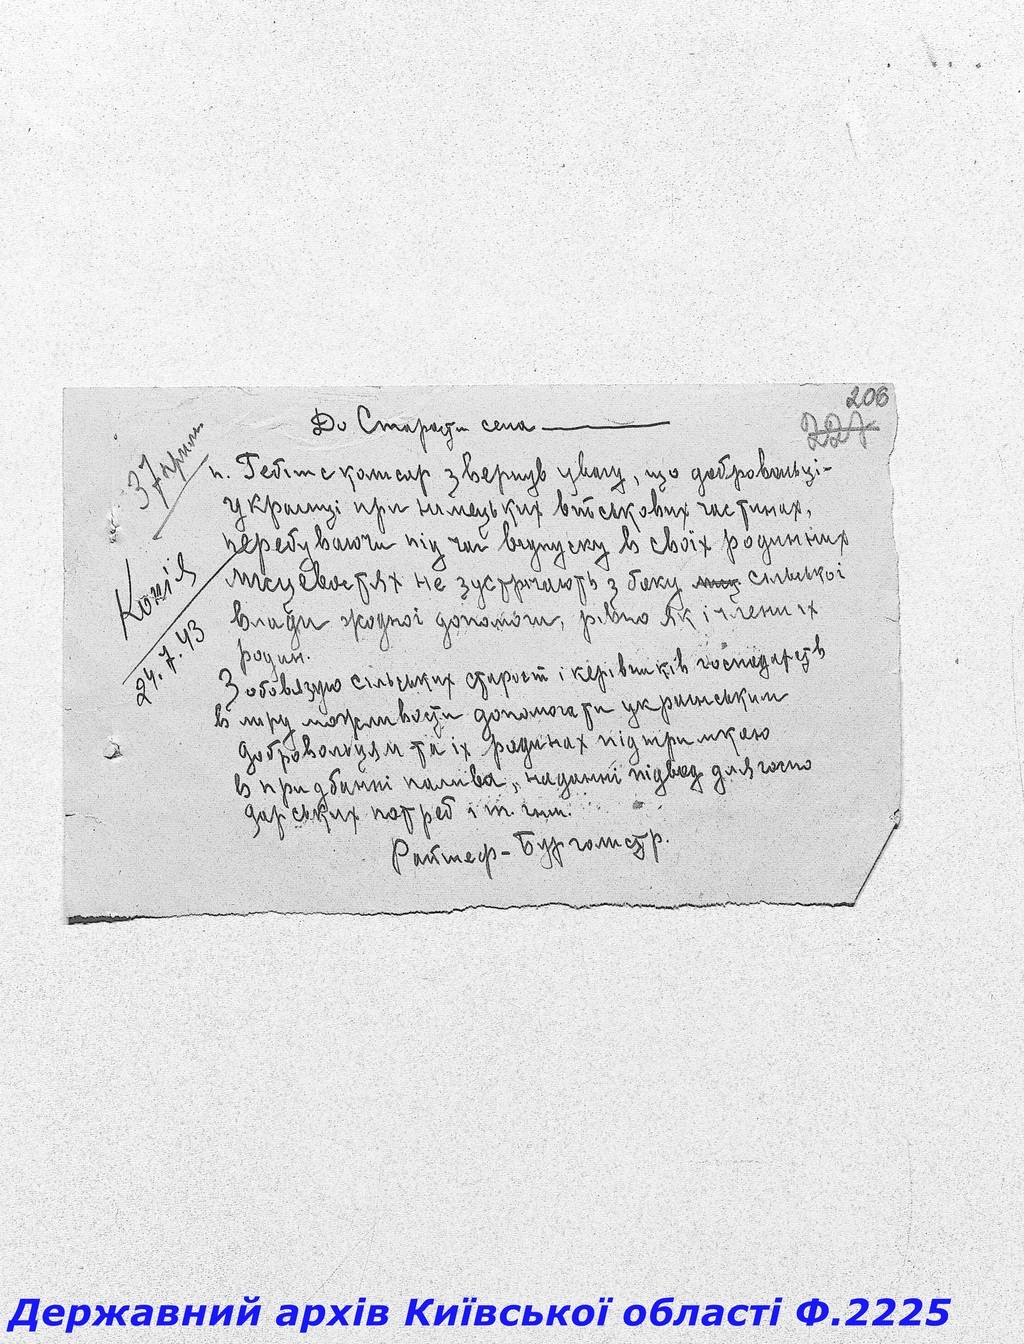 206
227
До Старости села
37 прим
п. Гебітскомісар звернув увагу, що добровольці-
українці при німецьких військових частинах,
перебуваючи під час відпуску в своїх родинних
місцевостях не зустрічають з боку сільської
влади жодної допомоги, рівно як і члени їх
родин.
Копія
24.7.43
Зобовязую сільських старост і керівників господарств
в міру можливости допомогати українським
добровольцям та їх родинах підтримкою
в придбанні палива, наданні підвод для госпо
дарських потреб і т. инш.
Райшеф-Бургомістр.
Державний архів Київської області Ф.2225